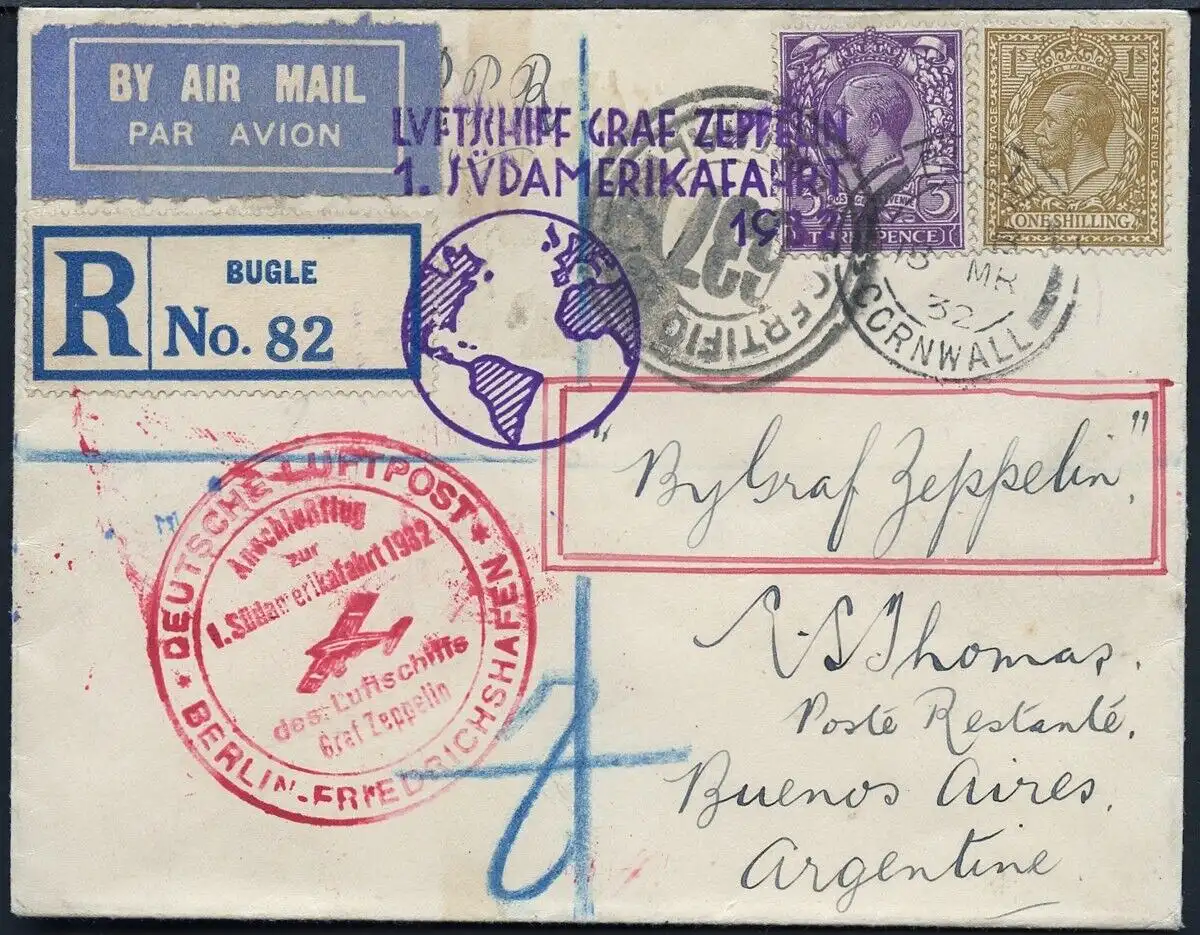 BY AIR MAIL
PAR AVION
LUFTSCHIFF GRAF ZEPPELIN
1. SÜDAMERIKAFAHRT
1932
3 POSTAGE REVENUE 3
THREE PENCE
1S 1S
POSTAGE REVENUE
ONE SHILLING
R
BUGLE
No. 82
CERTIFIC
MR
32
CORNWALL
"By Graf Zeppelin"
DEUTSCHE LUFTPOST
* BERLIN-FRIEDRICHSHAFEN *
Anschlußflug
zur
1. Südamerikafahrt 1932
des Luftschiffs
Graf Zeppelin
E.S. Thomas.
Poste Restanté.
Buenos Aires.
Argentine